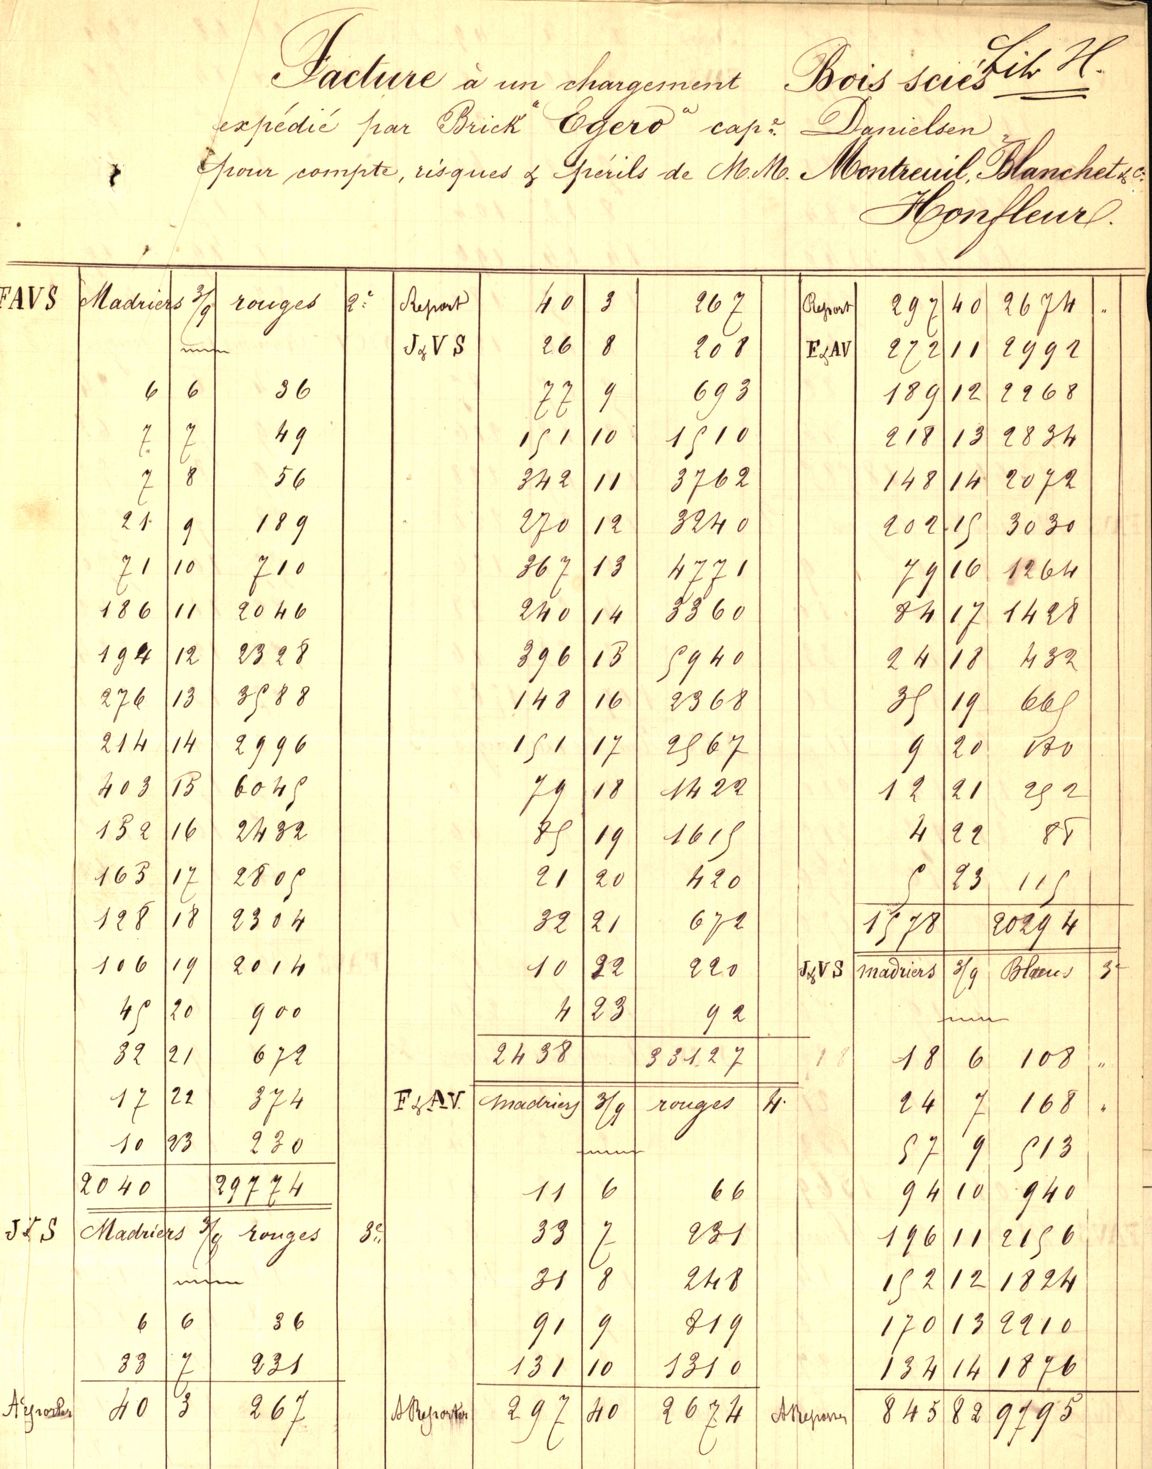 Facture à un chargement Bois sciés Litr H.
expédié par Brick "Egerö" capne Danielsen
pour compte, risques & périls de M.M. Montreuil, Blanchet & Co
Honfleur.
FAVS Madriers 3/9 rouges 2e
6 6 36
7 7 49
7 8 56
21 9 189
71 10 710
186 11 2046
194 12 2328
276 13 3588
214 14 2996
403 15 6045
152 16 2432
165 17 2805
128 18 2304
106 19 2014
45 20 900
32 21 672
17 22 374
10 23 230
2040 29774
J&VS Madriers 3/9 rouges 3e
6 6 36
33 7 231
A reporter 40 3 267
Report 40 3 267
J&VS 26 8 208
77 9 693
151 10 1510
342 11 3762
270 12 3240
367 13 4771
240 14 3360
396 15 5940
148 16 2368
151 17 2567
79 18 1422
85 19 1615
21 20 420
32 21 672
10 22 220
4 23 92
2438 33127
F&AV. madriers 3/9 rouges 4.
11 6 66
33 7 231
31 8 248
91 9 819
131 10 1310
A Reporter 297 40 2674
Report 297 40 2674 "
F&AV 272 11 2992
189 12 2268
218 13 2834
148 14 2072
202 15 3030
79 16 1264
84 17 1428
24 18 432
35 19 665
9 20 180
12 21 252
4 22 88
5 23 115
1578 20294
J&VS madriers 3/9 Blancs 3e
18 6 108 "
24 7 168 "
57 9 513
94 10 940
196 11 2156
152 12 1824
170 13 2210
134 14 1876
A Reporter 845 82 9795